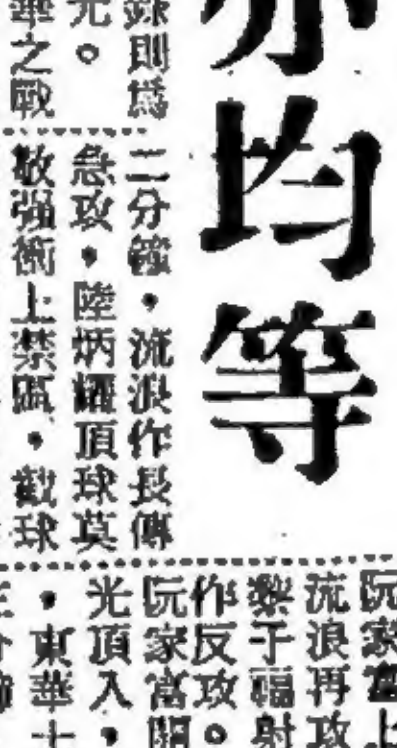 亦均等
錄則為
元。
華之戰
二分鐘，流浪作長傳
急攻，陸炳耀頂球莫
敬强衝上禁區，觀球
阮家富上
流浪再攻
黎子福射
作反攻。
阮家富開
光頂入，
，東華十